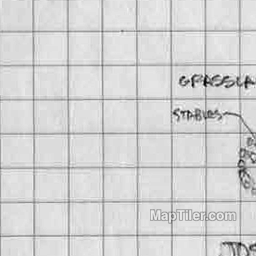 GRASSLA
STABLES
MapTiler.com